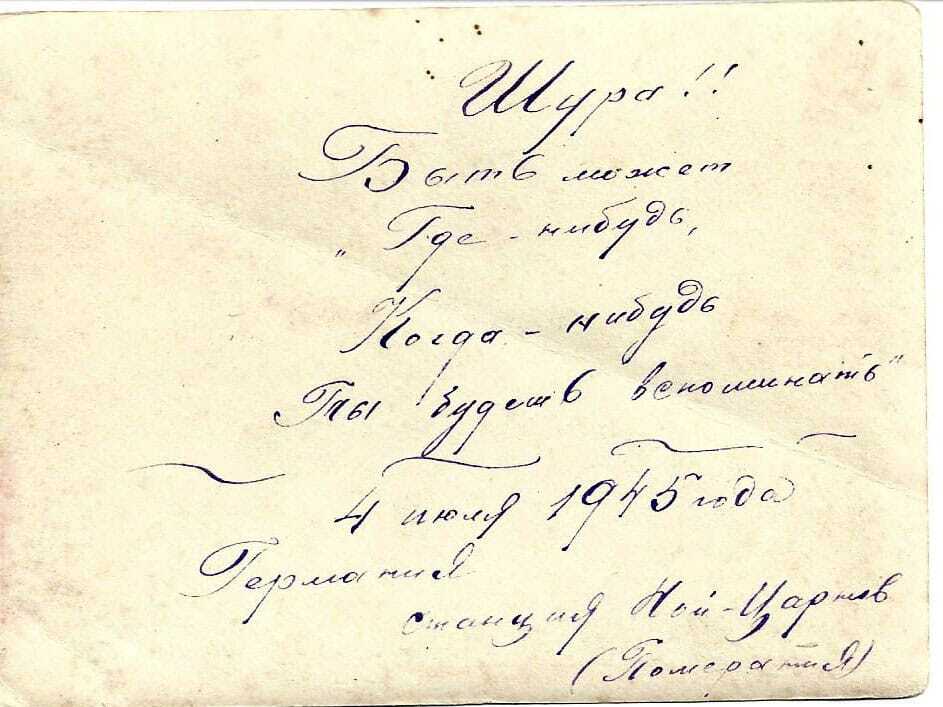 Шура!!
Быть может
„Где-нибудь,
Когда-нибудь
Ты будешь вспоминать"
4 июля 1945 года
Германия
станция Ной-Царнов
(Померания)